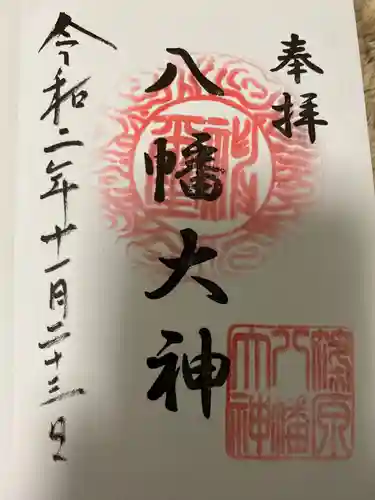 奉拝
八幡大神
令和二年十一月二十三日
篠原
八幡
大神